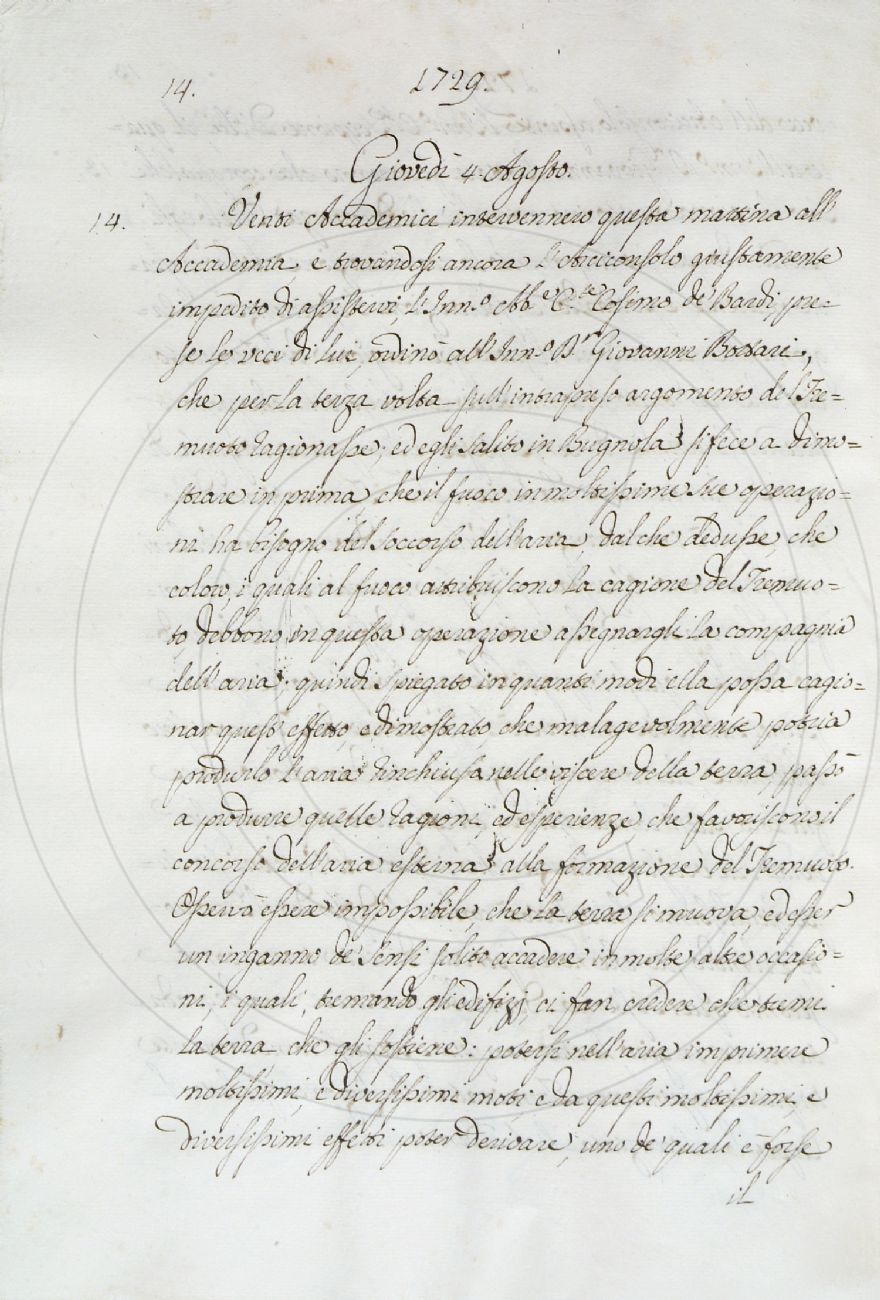 14.
1729.
Giovedì 4. Agosto.
14.
Venti Accademici intervennero questa mattina all'
Accademia, e trovandosi ancora l'Arciconsolo giustamente
impedito di assistervi, l'Inn.o Abb.e C.te Cosimo de' Bardi, pre=
se le veci di lui, ordinò all'Inn.o D.re Giovanni Bottari,
che per la terza volta sull'intrapreso argomento del Tre=
muoto ragionasse; ed egli salito in Bugnola si fece a dimo=
strare in prima che il fuoco in moltissime sue operazio=
ni ha bisogno del soccorso dell'aria, dal che dedusse, che
coloro, i quali al fuoco attribuiscono la cagione del Tremuo=
to debbono in questa operazione assegnargli la compagnia
dell'aria; quindi spiegato in quanti modi ella possa cagio=
nar questi effetti, e dimostrato, che malagevolmente potria
produrlo l'aria rinchiusa nelle viscere della terra, passò
a produrre quelle ragioni, ed esperienze che favoriscono il
concorso dell'aria esterna alla formazione del Tremuoto.
Osservò essere impossibile, che la terra si muova, ed esser
un inganno de' Sensi solito accadere in molte altre occasio=
ni, i quali, tremando gli edifizj, ci fan credere che tremi
la terra che gli sostiene: potersi nell'aria imprimere
moltissimi, e diversissimi moti e da questi moltissimi, e
diversissimi effetti poter derivare, uno de' quali è forse
il